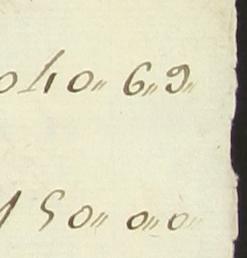 040,, 6,, 9,,
150,, 0,, 0,,